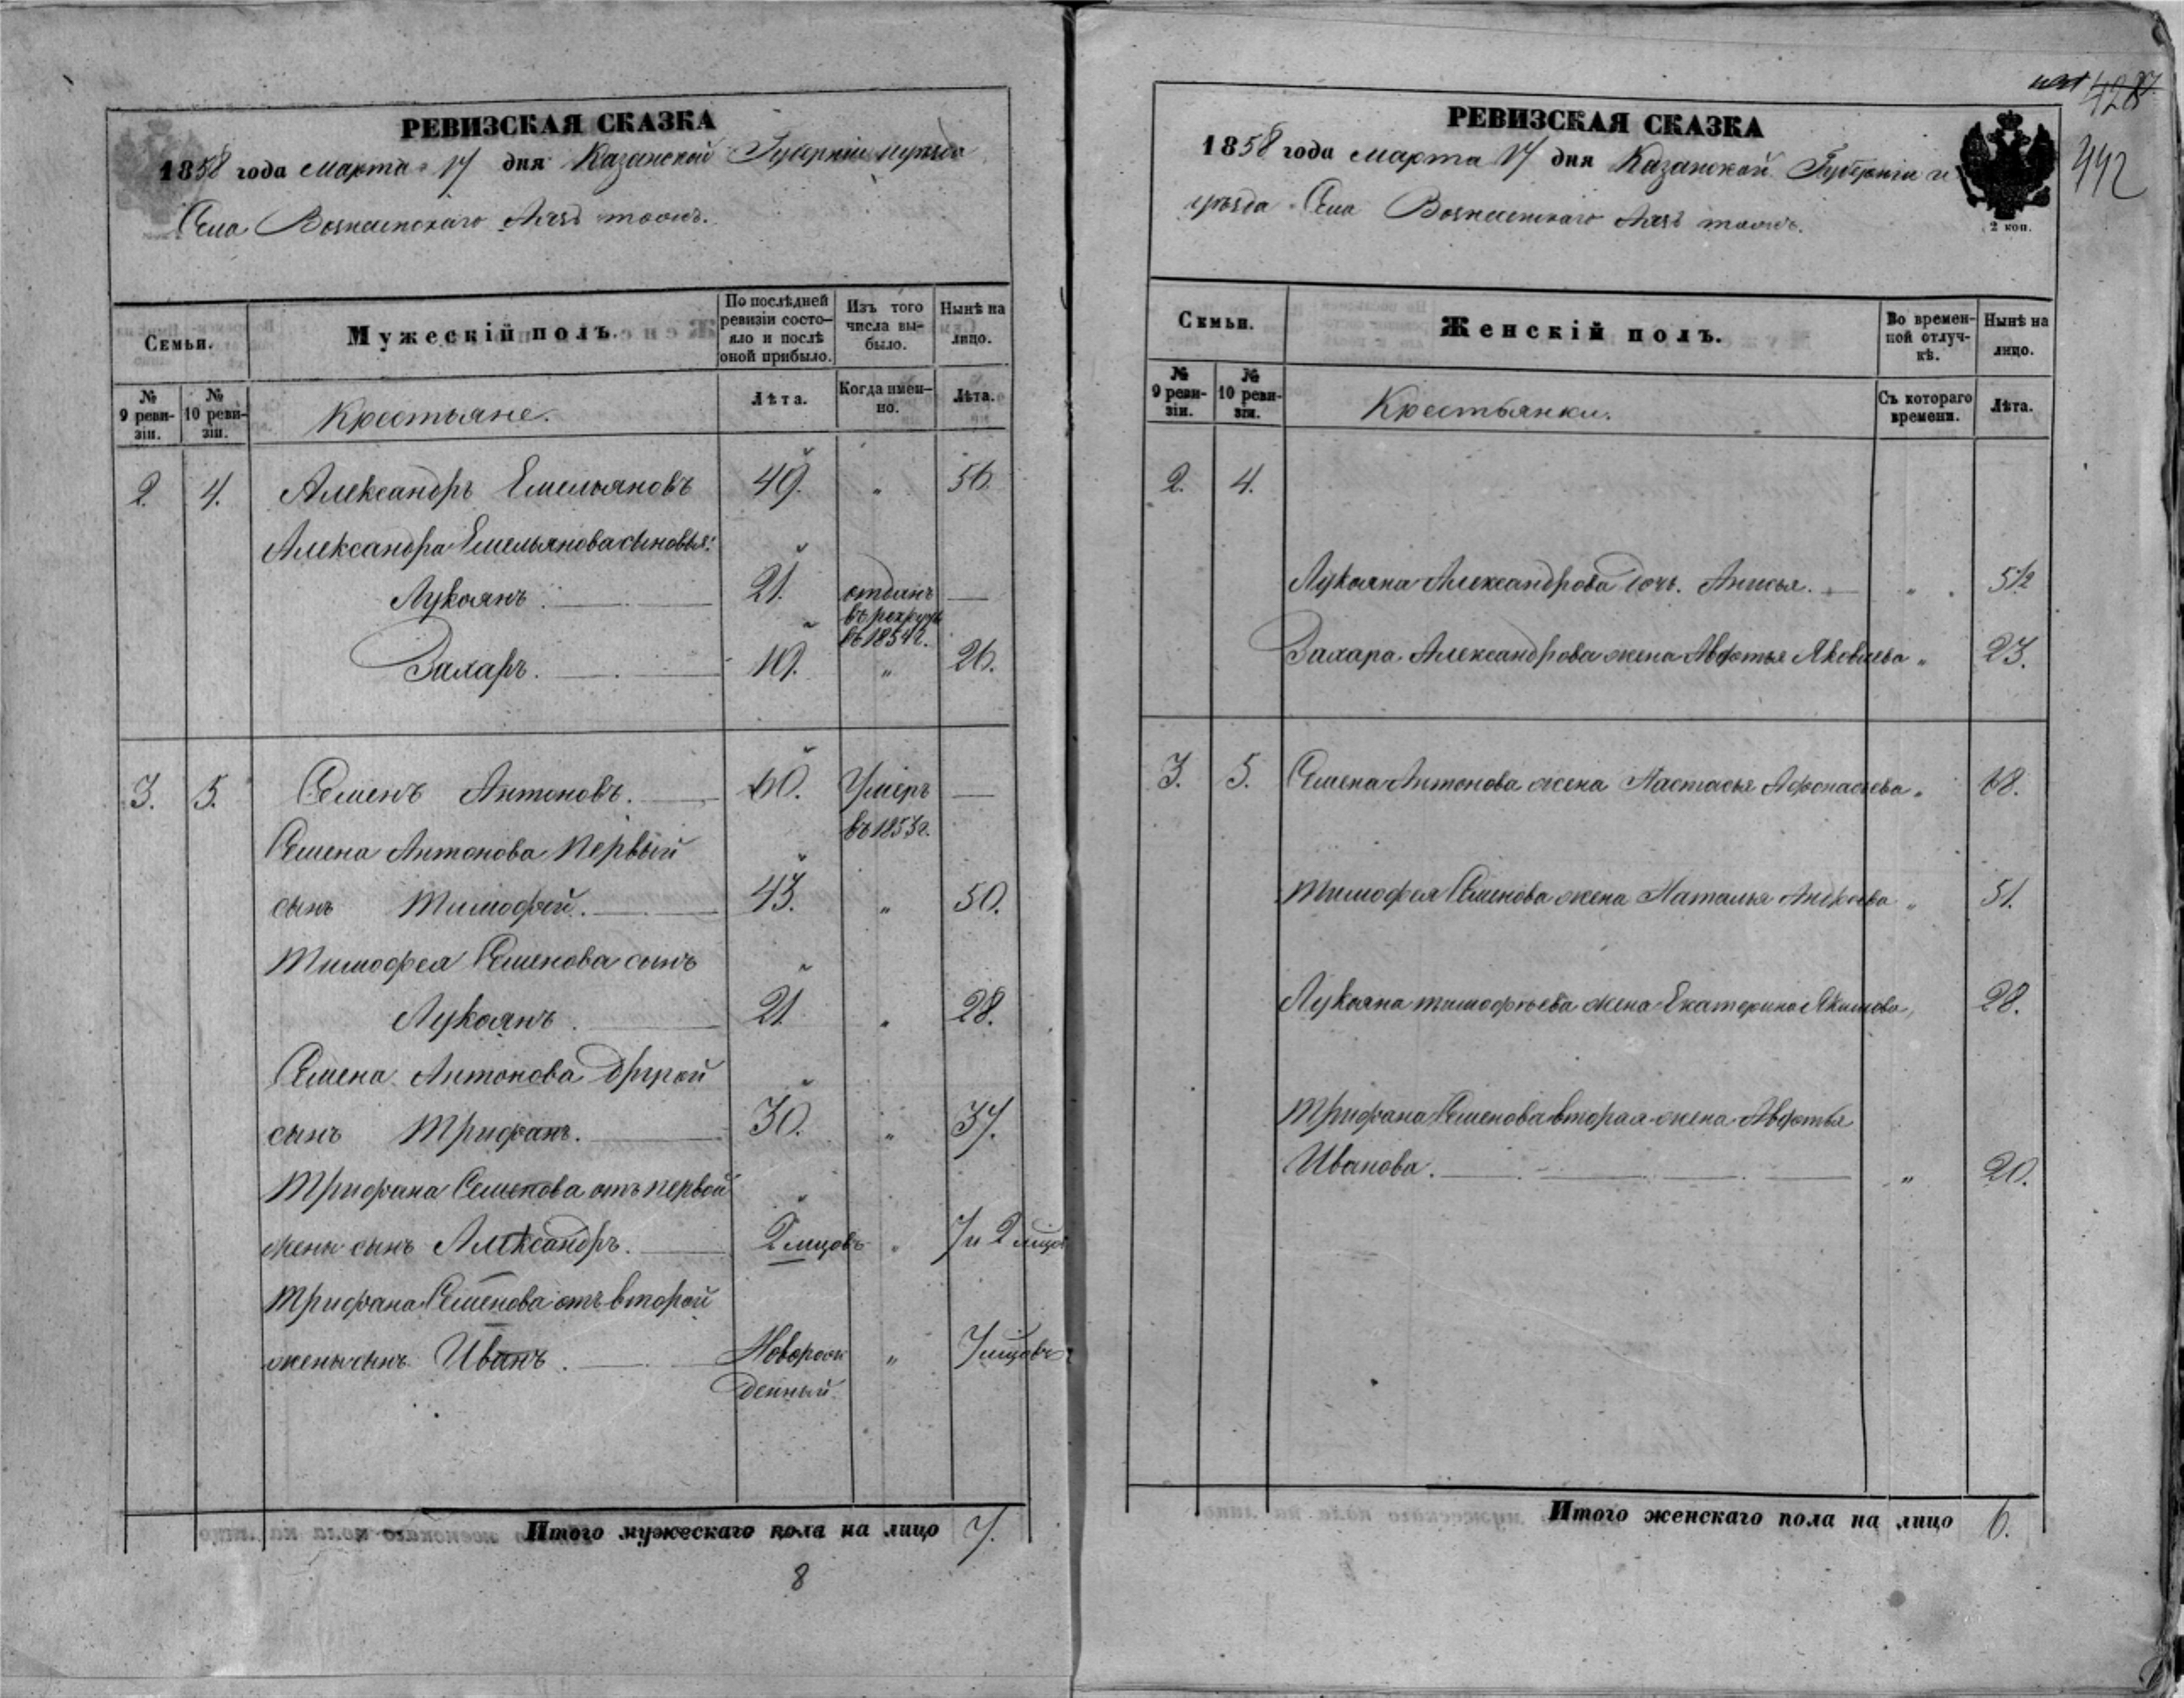 РЕВИЗСКАЯ СКАЗКА
1858 года марта 17 дня Казанской Губерніи и уѣзда
Села Вознесенскаго тожъ.
Семьи.
Мужескій полъ.
По послѣдней ревизіи состояло и послѣ оной прибыло.
Изъ того числа выбыло.
Нынѣ на лицо.
№ 9 ревизіи.
№ 10 ревизіи.
Крестьяне.
Лѣта.
Когда именно.
Лѣта.
2. 4. Александръ Емельяновъ 49. " 56.
Александра Емельянова сыновья:
Лукоянъ. 21. отданъ въ рекруты въ 1854 г. —
Захаръ. 19. " 26.
3. 5. Семенъ Антоновъ. 60. Умеръ въ 1853 г. —
Семена Антонова первый
сынъ Тимофей. 43. " 50.
Тимофея Семенова сынъ
Лукоянъ. 21. " 28.
Семена Антонова другой
сынъ Трифанъ. 30. " 37.
Трифана Семенова отъ первой
жены сынъ Александръ. 2 мѣцовъ " 7 и 2 мѣцов
Трифана Семенова отъ второй
жены сынъ Иванъ. Новорож " 7 мѣцовъ
денный.
Итого мужескаго пола на лицо 7.
8
428
442
РЕВИЗСКАЯ СКАЗКА
1858 года марта 17 дня Казанской Губерніи и
уѣзда Села Вознесенскаго тожъ.
2 коп.
Семьи.
Женскій полъ.
Во временной отлучкѣ.
Нынѣ на лицо.
№ 9 ревизіи.
№ 10 ревизіи.
Крестьянки.
Съ котораго времени.
Лѣта.
2. 4.
Лукояна Александрова дочь Анисья. " 5½
Захара Александрова жена Авдотья Яковлева " 23.
3. 5. Семена Антонова жена Настасья Афонасьева " 68.
Тимофея Семенова жена Наталья Андреева " 51.
Лукояна Тимофѣева жена Екатерина Якимова " 28.
Трифана Семенова вторая жена Авдотья
Иванова. " 20.
Итого женскаго пола на лицо 6.